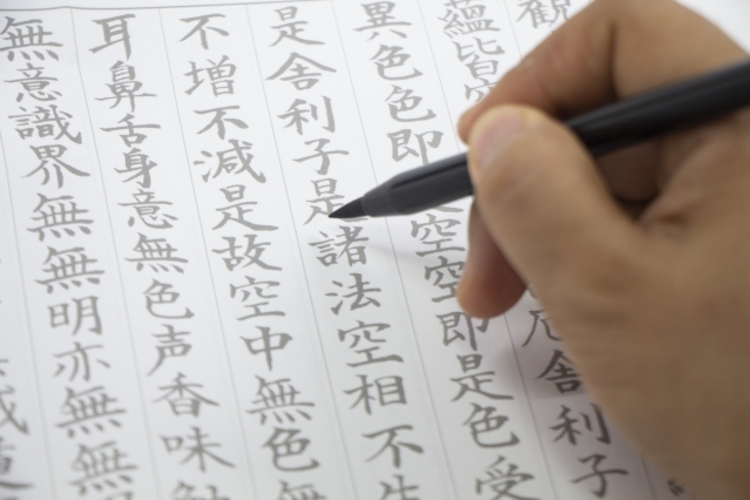 観
蘊皆空 厄舎利子
異色色即 空空即是色受
是舎利子是諸法空相不生
不増不減是故空中無色無
耳鼻舌身意無色声香味触
無意識界無無明亦無無